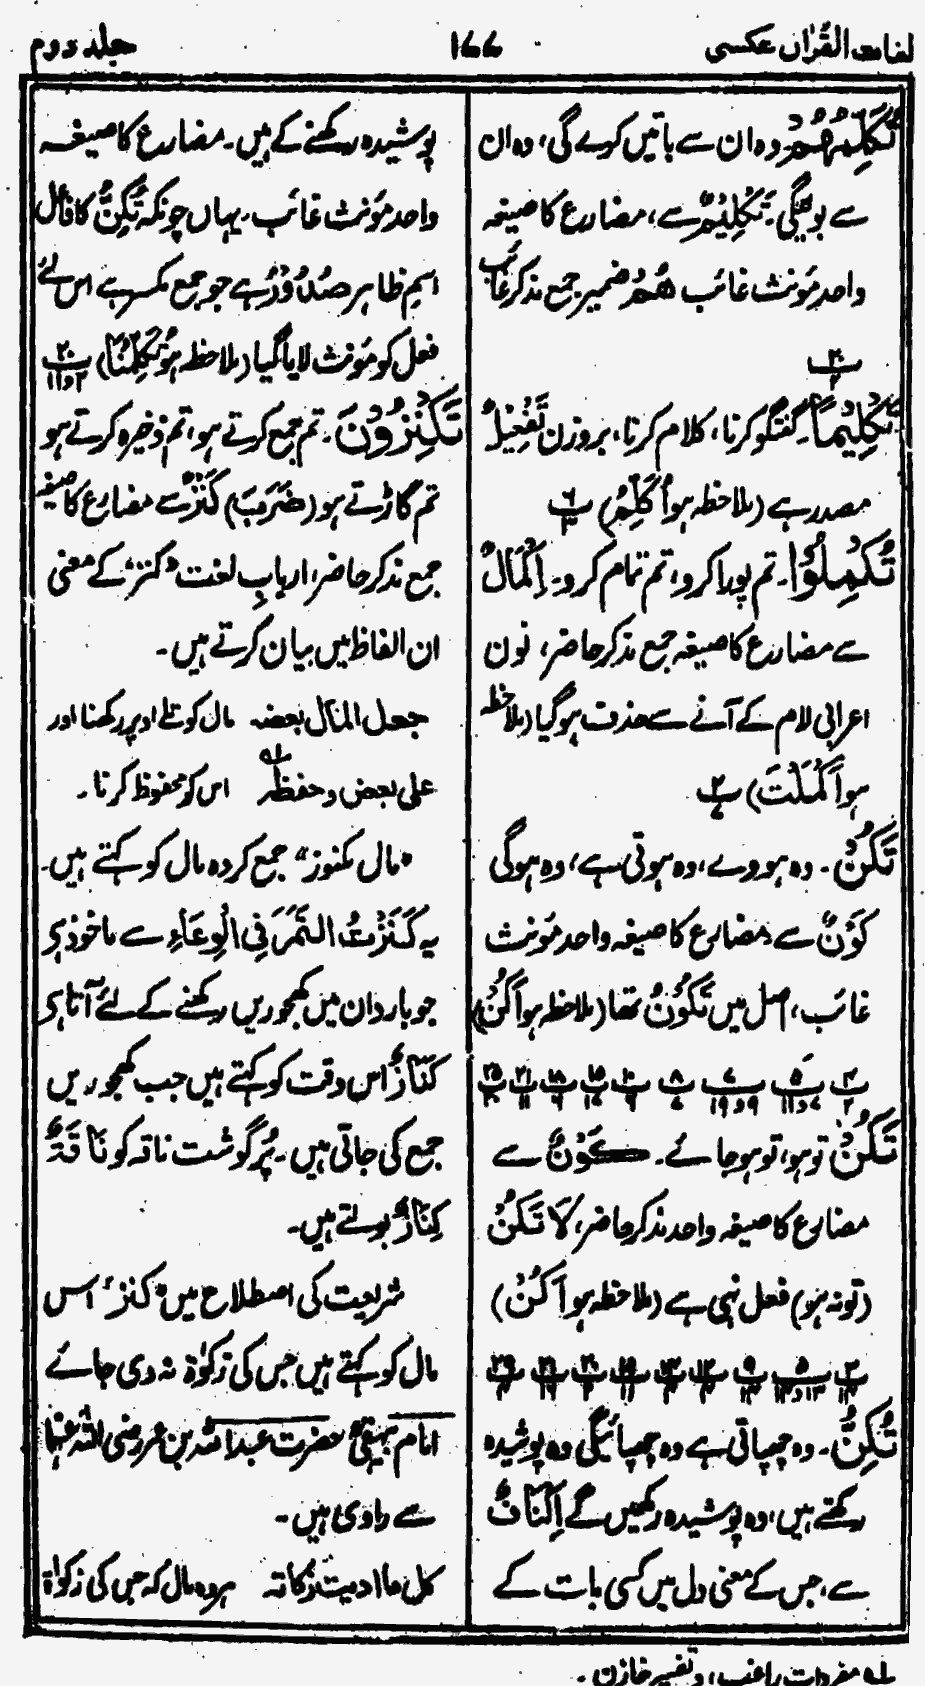 لغات القرآن عکسی ۱۷۷ جلد دوم
تُکَلِّمُهُمْ۔ وہ ان سے باتیں کرے گی، وہ ان
سے بولیگی۔ تَکْلِیْمٌ سے، مضارع کا صیغہ
واحد مؤنث غائب ھُمْ ضمیر جمع مذکر غائب
پ۲۰ ۲
تَکْلِیْمًا۔ گفتگو کرنا، کلام کرنا، بروزن تَفْعِیْلٌ
مصدر ہے (ملاحظہ ہو اُکَلِّمُ) پ۶ ۳
تُکْمِلُوْا۔ تم پورا کرو، تم تمام کرو۔ اِکْمَالٌ
سے مضارع کا صیغہ جمع مذکر حاضر، نون
اعرابی لام کے آنے سے حذف ہو گیا (ملاحظہ
ہو اَکْمَلْتُ) پ۲ ۷
تَکُنْ۔ وہ ہووے، وہ ہوتی ہے، وہ ہوگی
کَوْنٌ سے مضارع کا صیغہ واحد مؤنث
غائب، اصل میں تَکُوْنُ تھا (ملاحظہ ہو اَکُنْ)
پ۳ ۲ پ۵ ۷و۱۱ پ۷ ۹و۱۹ پ۸ ۷ پ۱۰ ۶ پ۱۵ ۱۷ پ۱۸ ۶ پ۲۱ ۱۱ پ۲۵ ۲۰
تَکُنْ تو ہو، تو ہو جائے۔ کَوْنٌ سے
مضارع کا صیغہ واحد مذکر حاضر، لَا تَکُنْ
(تو نہ ہو) فعل نہی ہے (ملاحظہ ہو اَکُنْ)
پ۳ ۱۴ پ۵ ۱۳و۱۴ پ۹ ۱۴ پ۱۲ ۴ پ۱۴ پ۱۹ ۱۱ پ۲۰ ۳ پ۲۱ ۱۶ پ۲۹ ۴
تُکِنُّ۔ وہ چھپاتی ہے وہ چھپائیگی وہ پوشیدہ
رکھتے ہیں، وہ پوشیدہ رکھیں گے اِکْنَانٌ
سے، جس کے معنی دل میں کسی بات کے
پوشیدہ رکھنے کے ہیں۔ مضارع کا صیغہ
واحد مؤنث غائب۔ یہاں چونکہ تُکِنُّ کا فاعل
اسم ظاہر صُدُوْرُ ہے جو جمع مکسر ہے اس لئے
فعل کو مؤنث لایا گیا (ملاحظہ ہو تُکَلِّمُنَا) پ۲۰ ۲و۱۱
تَکْنِزُوْنَ۔ تم جمع کرتے ہو، تم ذخیرہ کرتے ہو
تم گاڑتے ہو (ضَرَبَ) کَنْزٌ سے مضارع کا صیغہ
جمع مذکر حاضر، اربابِ لغت "کنز" کے معنی
ان الفاظ میں بیان کرتے ہیں۔
جعل المال بعضہ مال کو تلے اوپر رکھنا اور
علی بعض و حفظہ لہ اس کو محفوظ کرنا۔
"مال مکنوز" جمع کردہ مال کو کہتے ہیں۔
یہ کَنَزْتُ التَّمَرَ فِی الْوِعَاءِ سے ماخوذ ہی
جو باردان میں کھجوریں رکھنے کے لئے آتا ہی
کَنَّازٌ اس وقت کو کہتے ہیں جب کھجوریں
جمع کی جاتی ہیں۔ پُر گوشت ناقہ کو نَاقَۃٌ
کِنَازٌ بولتے ہیں۔
شریعت کی اصطلاح میں "کنز" اس
مال کو کہتے ہیں جس کی زکوٰۃ نہ دی جائے
امام بیہقیؒ حضرت عبداللہ بن عمر رضی اللہ عنہما
سے راوی ہیں۔
کل ما ادیت زکاتہ ہر وہ مال کہ جس کی زکوٰۃ
لہ مفردات راغب، و تفسیر خازن۔